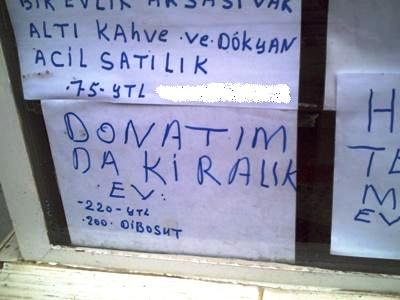 BİR EVLİK ARSASI VAR
ALTI KAHVE VE DÖKYAN
ACİL SATILIK
.75-YTL
DONATIM
DA KİRALIK
EV:
-220-YTL
.200. DİBOSUT
H
TE
M
EV